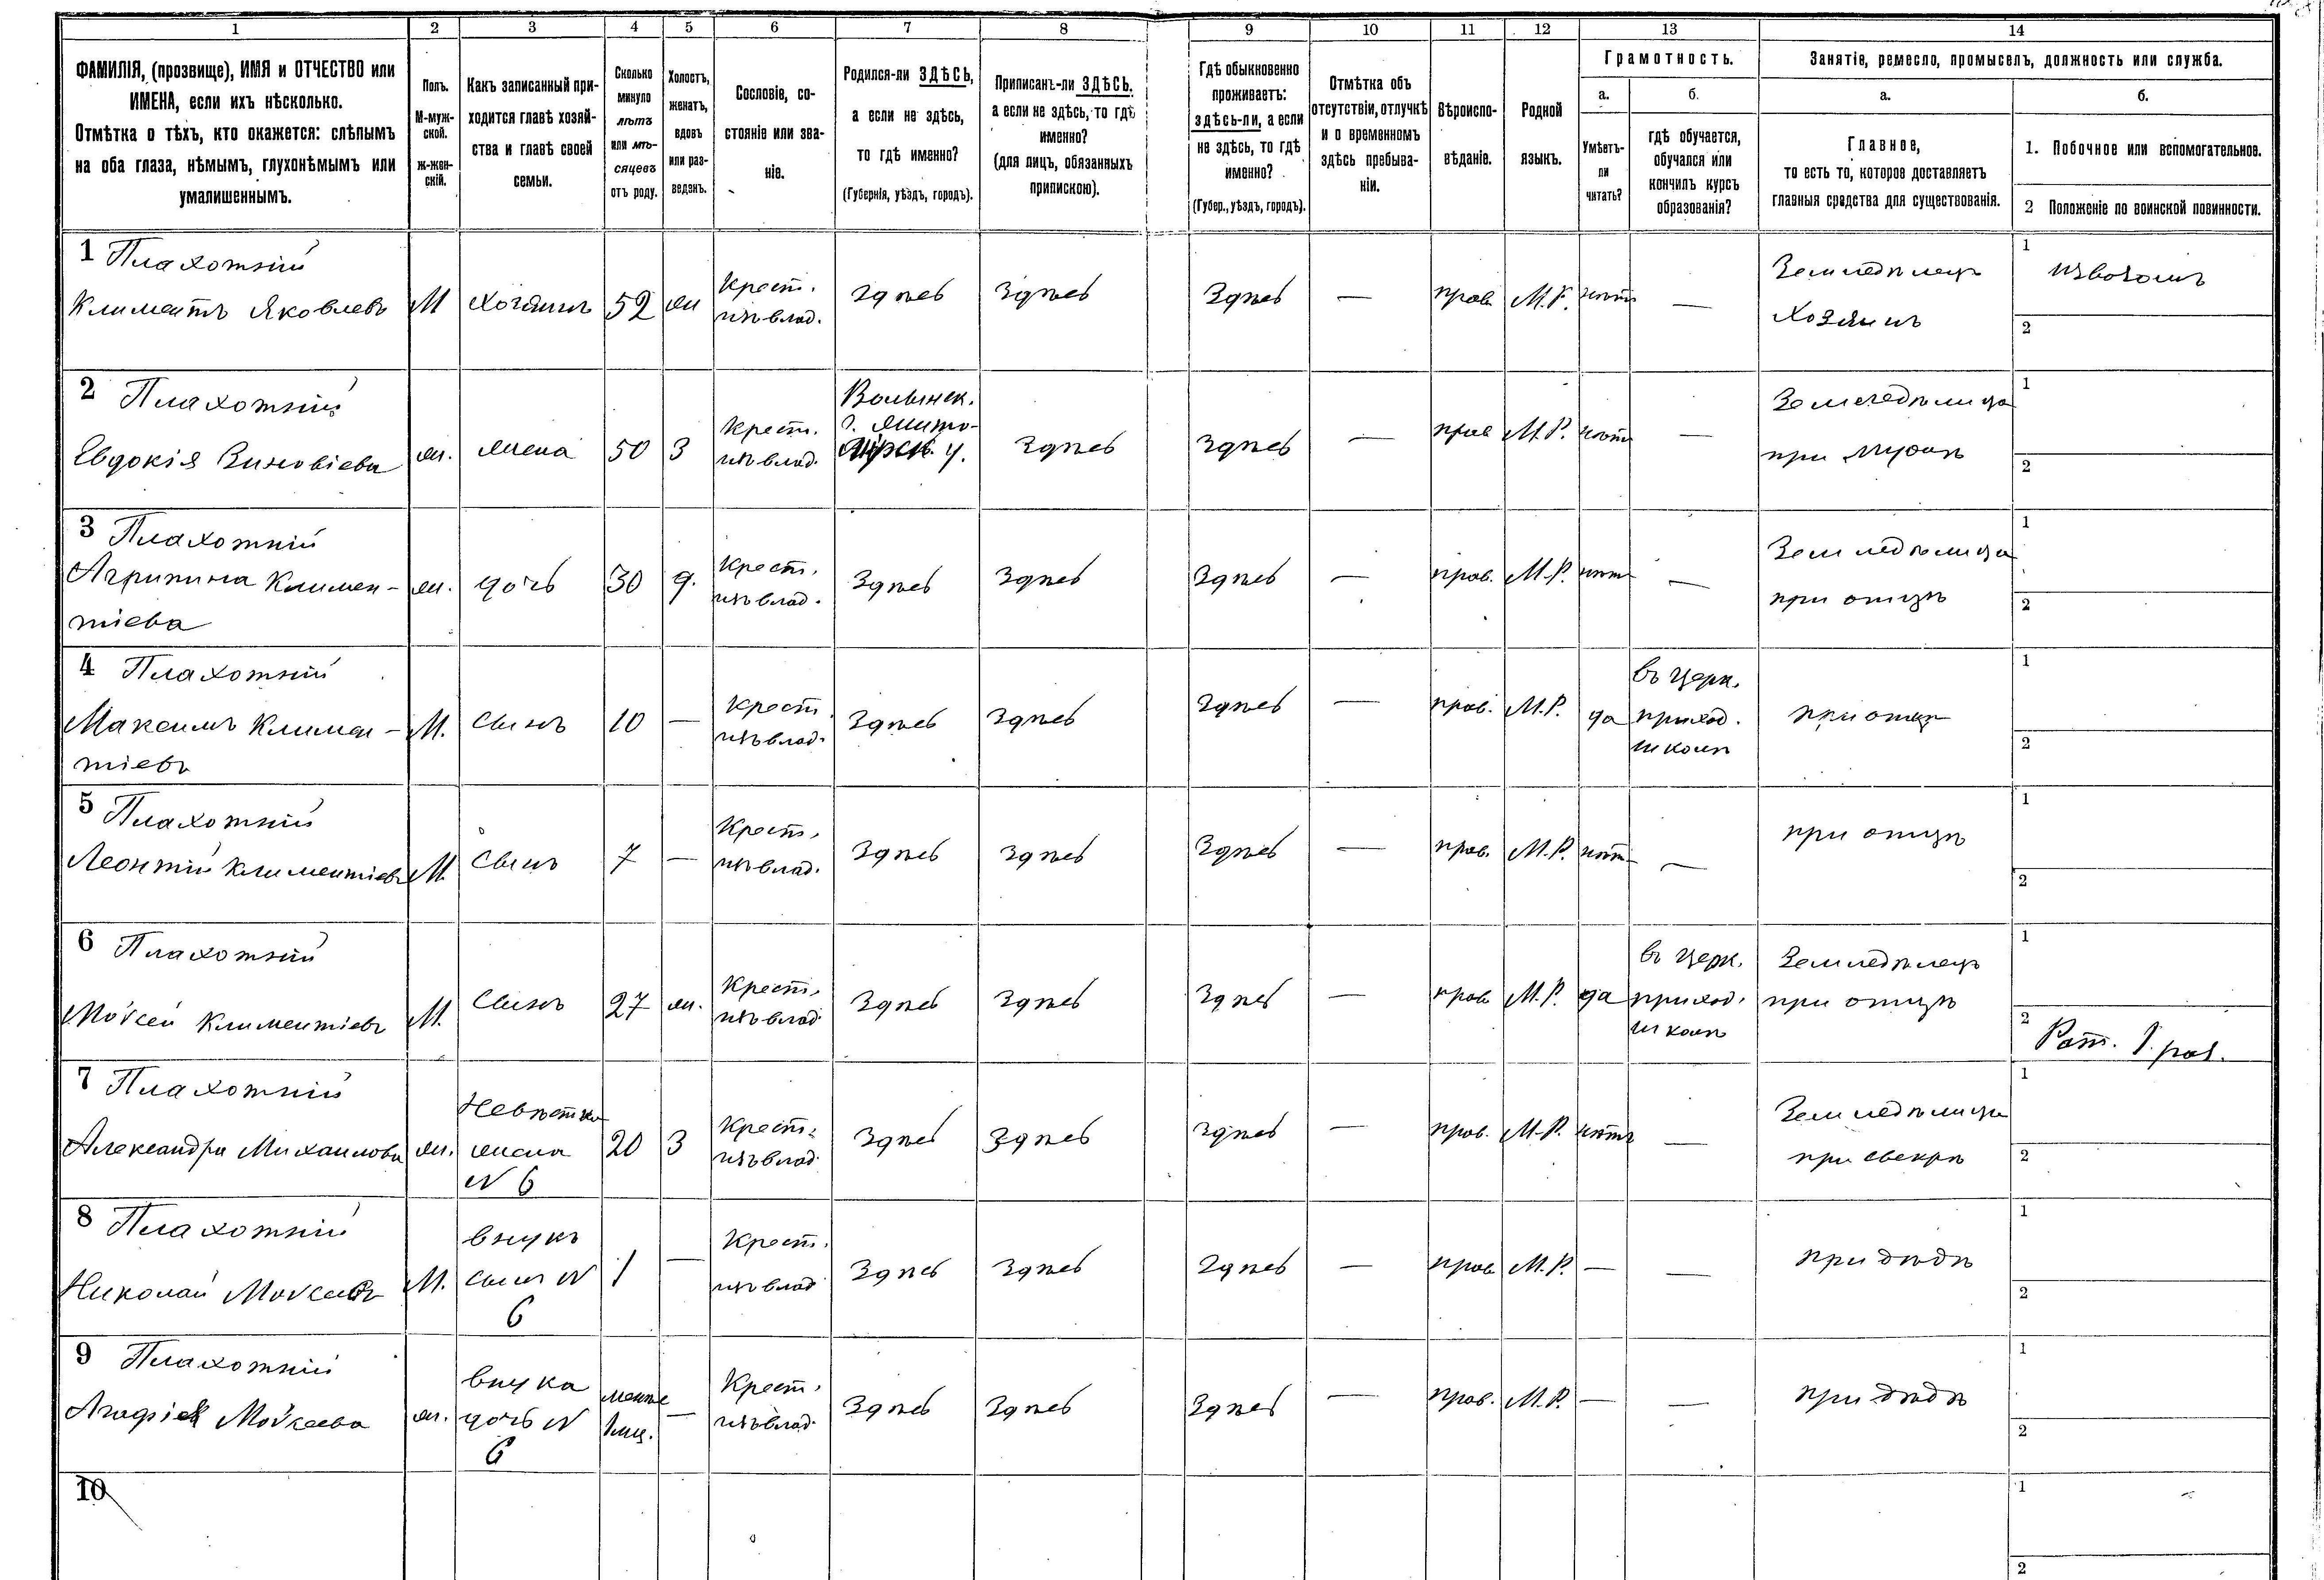 1 2 3 4 5 6 7 8 9 10 11 12 13 14
ФАМИЛІЯ, (прозвище), ИМЯ и ОТЧЕСТВО или
ИМЕНА, если ихъ нѣсколько.
Отмѣтка о тѣхъ, кто окажется: слѣпымъ
на оба глаза, нѣмымъ, глухонѣмымъ или
умалишеннымъ.
Полъ.
М-муж-
ской.
ж-жен-
скій.
Какъ записанный при-
ходится главѣ хозяй-
ства и главѣ своей
семьи.
Сколько
минуло
лѣтъ
или мѣ-
сяцевъ
отъ роду.
Холостъ,
женатъ,
вдовъ
или раз-
веденъ.
Сословіе, со-
стояніе или зва-
ніе.
Родился-ли ЗДѢСЬ,
а если не здѣсь,
то гдѣ именно?
(Губернія, уѣздъ, городъ).
Приписанъ-ли ЗДѢСЬ.
а если не здѣсь, то гдѣ
именно?
(для лицъ, обязанныхъ
припискою).
Гдѣ обыкновенно
проживаетъ:
здѣсь-ли, а если
не здѣсь, то гдѣ
именно?
(Губер., уѣздъ, городъ).
Отмѣтка объ
отсутствіи, отлучкѣ
и о временномъ
здѣсь пребыва-
ніи.
Вѣроиспо-
вѣданіе.
Родной
языкъ.
Грамотность.
а.
Умѣетъ-
ли
читать?
б.
гдѣ обучается,
обучался или
кончилъ курсъ
образованія?
Занятіе, ремесло, промыселъ, должность или служба.
а.
Главное,
то есть то, которое доставляетъ
главныя средства для существованія.
б.
1. Побочное или вспомогательное.
2 Положеніе по воинской повинности.
1 Плахотній
Климентъ Яковлевъ
М
хозяинъ
52
ж
Крест.
изъ влад.
Здѣсь
Здѣсь
Здѣсь
—
прав.
М.Р.
нѣтъ
—
Земледѣлецъ
Хозяинъ
1
извозомъ
2
2 Плахотній
Евдокія Зиновіева
ж.
жена
50
З
Крест.
изъ влад.
Волынск.
г. Жито-
мірск. у.
Здѣсь
Здѣсь
—
прав
М.Р.
нѣтъ
—
Земледѣлица
при мужѣ
1
2
3 Плахотній
Агрипина Климен-
тіева
ж.
дочь
30
д.
Крест.
изъ влад.
Здѣсь
Здѣсь
Здѣсь
—
прав.
М.Р.
нѣтъ
—
Земледѣлица
при отцѣ
1
2
4 Плахотній
Максимъ Климен-
тіевъ
М.
сынъ
10
—
Крест.
изъ влад.
Здѣсь
Здѣсь
Здѣсь
—
прав.
М.Р.
да
въ церк.
приход.
школѣ
при отцѣ
1
2
5 Плахотній
Леонтій Климентіевъ
М.
сынъ
7
—
Крест.
изъ влад.
Здѣсь
Здѣсь
Здѣсь
—
прав.
М.Р.
нѣтъ
—
при отцѣ
1
2
6 Плахотній
Моѵсей Климентіевъ
М.
Сынъ
27
ж.
Крест.
изъ влад.
Здѣсь
Здѣсь
Здѣсь
—
прав.
М.Р.
да
въ церк.
приход.
школѣ
Земледѣлецъ
при отцѣ
1
2
Рат. 1 раз.
7 Плахотній
Александра Михаилова
ж.
Невѣстка
жена
N 6
20
З
Крест.
изъ влад.
Здѣсь
Здѣсь
Здѣсь
—
прав.
М.Р.
нѣтъ
—
Земледѣлица
при свекрѣ
1
2
8 Плахотній
Николай Моѵсеевъ
М.
внукъ
сынъ N
6
1
—
Крест.
изъ влад.
Здѣсь
Здѣсь
Здѣсь
—
прав
М.Р.
—
—
при дѣдѣ
1
2
9 Плахотній
Агафія Моѵсеева
ж.
внука
дочь N
6
менѣе
1 мц.
—
Крест.
изъ влад.
Здѣсь
Здѣсь
Здѣсь
—
прав.
М.Р.
—
—
при дѣдѣ
1
2
10
1
2